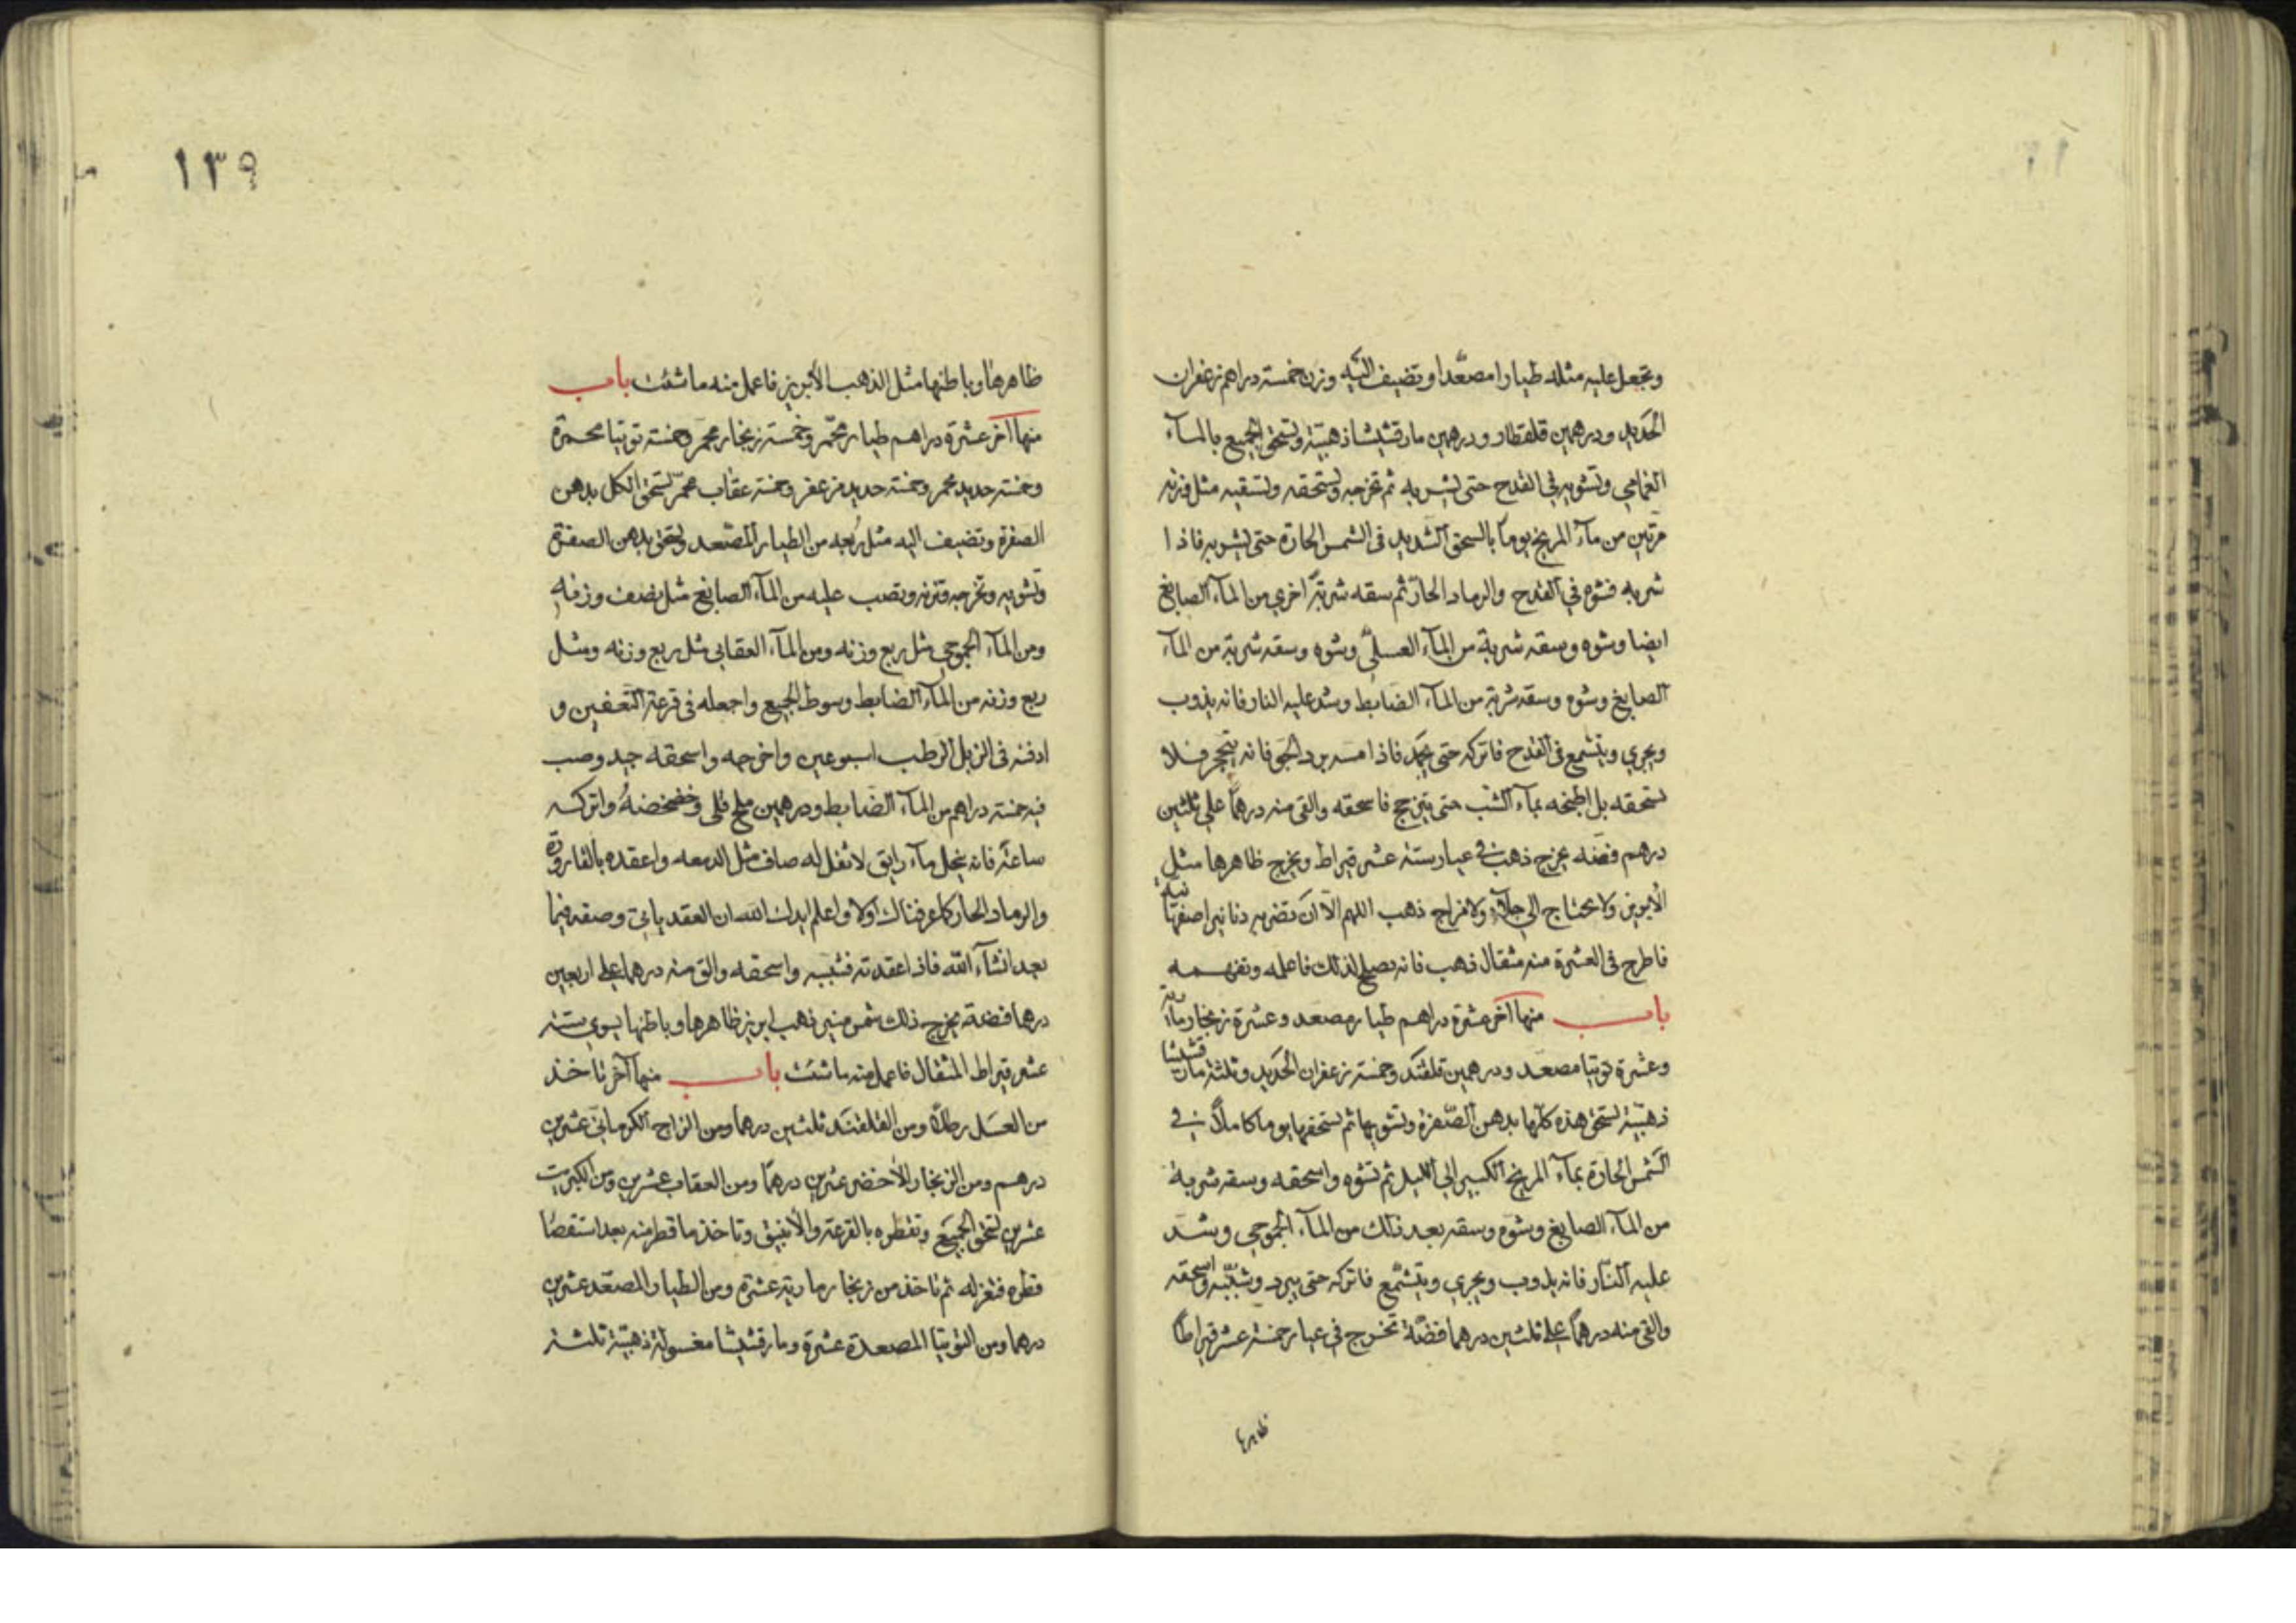 وتجعل عليه مثله طيارا مصعّدا وتضيف اليه وزن خمسة دراهم زعفران
الحديد ودرهمين قلقطار ودرهمين مارقشيشا ذهبية وتسحق الجميع بالمآء
وتشويه في القدح حتى يشربه ثم تخرجه وتسحقه وتسقيه مثل وزنه
مرتين من مآء المريخ يوما بالسحق الشديد في الشمس الحارة حتى يشربه فاذا
شربه فشوه في القدح والرماد الحار ثم سقه شربة اخري من المآء الصابغ
ايضا وشوه وسقه شربة من المآء العسلي وشوه وسقه شربة من المآء
الصابغ وشوه وسقه شربة من المآء الضابط وشد عليه النار فانه يذوب
ويجري ويتشمع في القدح فاتركه حتى يجمد فاذا مسه برد الجو فانه يتحجر فلا
تسحقه بل اطبخه بمآء الشب حتى يتزجج فاسحقه والقى منه درهما علي ثلثين
درهم فضه يخرج ذهب في عيار ستة عشر قيراط ويخرج ظاهرها مثل
الأبريز ولا يحتاج الي جلآء ولا مزاج ذهب اللهم الا ان تضربه دنانير اصفهانية
فاطرح في العشرة منه مثقال ذهب فانه يصلح لذلك فاعلمه وتفهمه
باب منها آخر عشرة دراهم طيار مصعد وعشرة زنجار مآرية
وعشرة توتيا مصعد ودرهمين قلقند وخمسة زعفران الحديد وثلثة مارقشيشا
ذهبية تسحق هذه كلها بدهن الصفرة وتشويها ثم تسحقها يوما كاملا في
الشمس الحارة بمآء المريخ الكبير الي الليل ثم تشوه واسحقه وسقه شربة
من المآء الصابغ وشوه وسقه بعد ذلك من المآء وشد
عليه النار فانه يذوب ويجري ويتشمع فاتركه حتى يبرد وشببه واسحقه
والقى منه درهما علي ثلثين درهما فضة تخرج في عيار خمسة عشر قيراطا
ظاهرها
١٣٩
ظاهرها وباطنها مثل الذهب الأبريز فاعمل منه ما شئت باب
منها آخر عشرة دراهم طيار محمر وخمسة زنجار محمر وخمسة توتيا محمرة
وخمسة حديد محمر وخمسة حديد مزعفر وخمسة عقاب محمر تسحق الكل بدهن
الصفرة وتضيف اليه مثل ربعه من الطيار المصعد وتسحق بدهن الصفرة
وتشويه وتخرجه وتزنه وتصب عليه من المآء الصابغ مثل نصف وزنه
ومن المآء مثل ربع وزنه ومن المآء العقابي مثل ربع وزنه ومثل
ربع وزنه من المآء الضابط وسوط الجميع واجعله في قرعة التعفين و
ادفنه في الزبل الرطب اسبوعين واخرجه واسحقه جيد وصب
فيه خمسة دراهم من المآء الضابط ودرهمين ملح قلي وخضخضه واتركه
ساعة فانه ينحل مآء رايق لا ثفل له صاف مثل الدمعه واعقده بالقارورة
والرماد الحار كما عرفناك اولا واعلم ايدك الله ان العقد ياتي وصفه فيما
بعد انشآء الله فاذا عقدته فشببه واسحقه والق منه درهما علي اربعين
درهما فضة يخرج ذلك شمس منير ذهب ابريز ظاهرها وباطنها يسوي ستة
عشر قيراط المثقال فاعمل منه ما شئت باب منها آخر تاخذ
من العسل رطلا ومن القلقند ثلثين درهما ومن الزاج الكرماني عشرين
درهم ومن الزنجار الأخضر عشرين درهما ومن العقاب عشرين ومن الكبريت
عشرين تسحق الجميع وتقطره بالقرعة والأنبيق وتاخذ ما قطر منه بعد استقصا
قطره فتعزله ثم تاخذ من زنجار مارية عشرة ومن الطيار المصعد عشرين
درهما ومن التوتيا المصعدة عشرة ومارقشيشا مغسولة ذهبية ثلثة